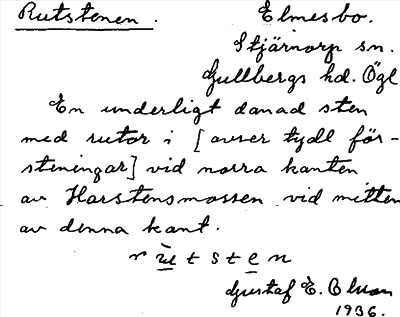 Rutstenen.
Elmesbo.
Stjärnorp sn.
Gullbergs hd. Ögl
En underligt danad sten
med rutor i [avser tydl för-
steningar] vid norra kanten
av Harstensmossen vid mitten
av denna kant.
r ù t s t e n
Gustaf E. Olsson
1936.